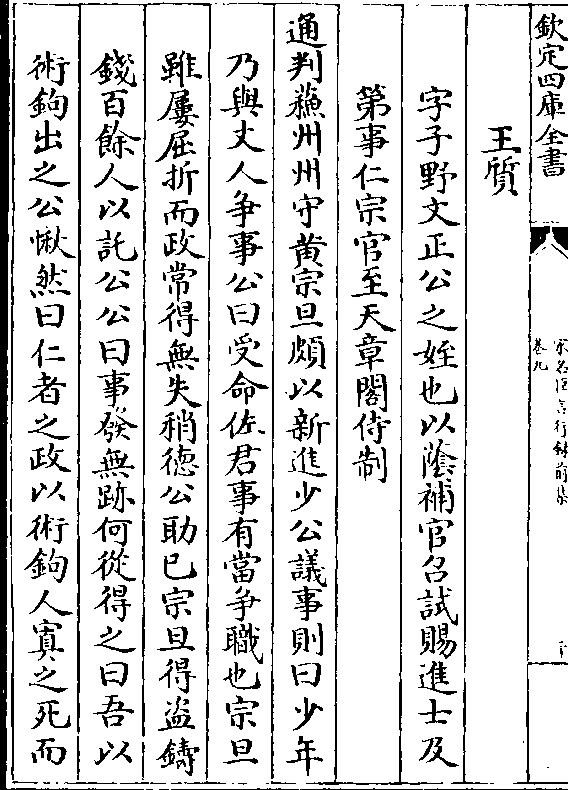 欽定四庫全書
宋名臣言行録前集
卷九
王質
字子野文正公之姪也以蔭補官召試賜進士及
第事仁宗官至天章閣侍制
通判蘇州州守黄宗旦頗以新進少公議事則曰少年
乃與丈人争事公曰受命佐君事有當争職也宗旦
雖屢屈折而政常得無失稍德公助已宗旦得盜鑄
錢百餘人以託公公曰事發無跡何從得之曰吾以
術鉤出之公愀然曰仁者之政以術鉤人寘之死而